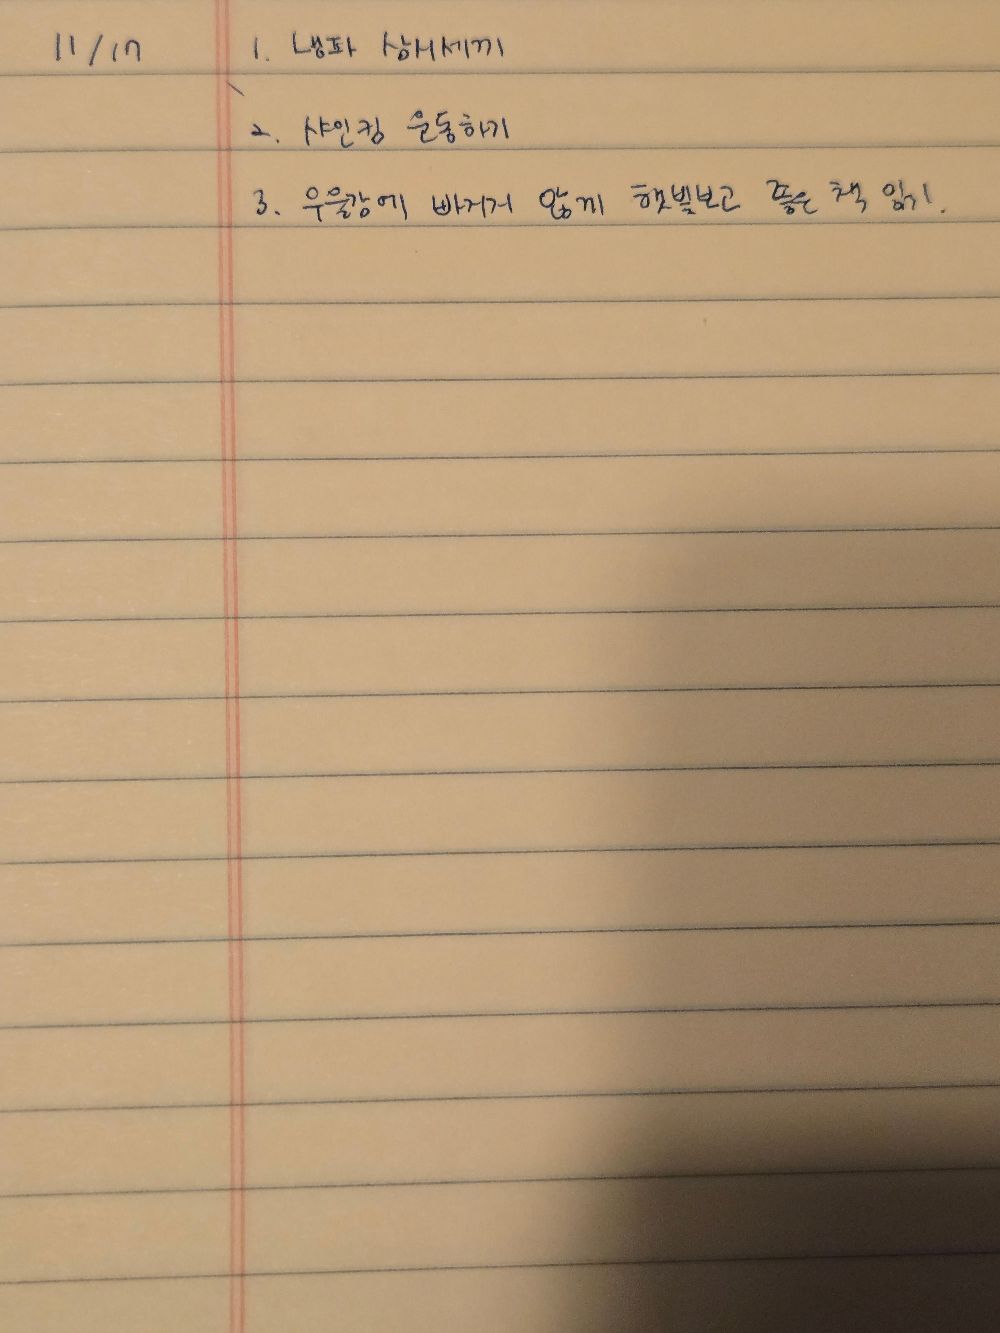 11/17 1. 냉파 삼시세끼
2. 샤인킹 운동하기
3. 우울감에 빠지지 않게 햇빛보고 좋은 책 읽기.